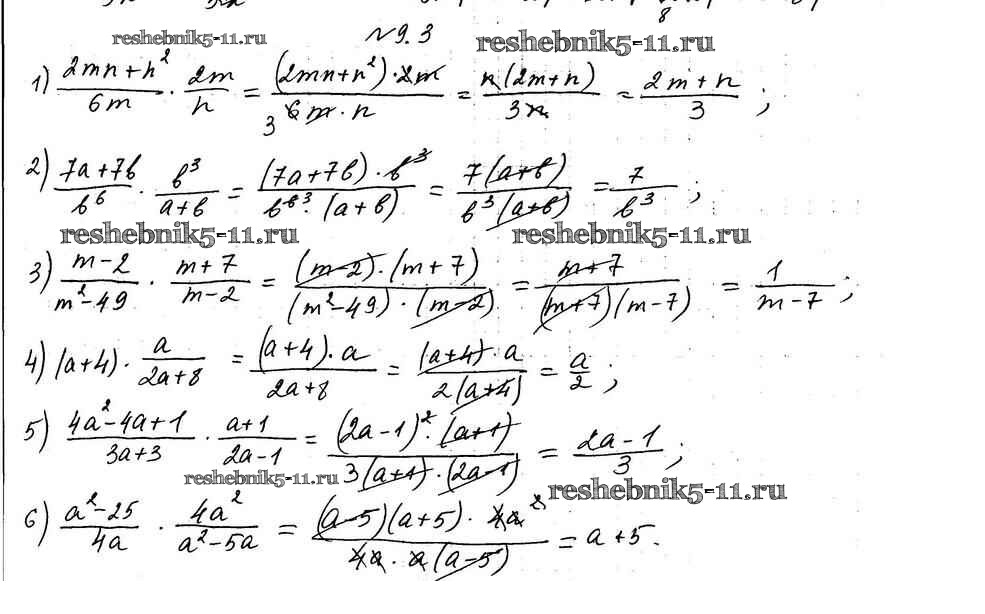 reshebnik5-11.ru
№9.3
reshebnik5-11.ru
1) (2mn+n²)/(6m) · (2m)/(n) = ((2mn+n²)·2m)/(6m·n) 3 = (n(2m+n))/(3n) = (2m+n)/3 ;
2) (7a+7b)/(b⁶) · (b³)/(a+b) = ((7a+7b)·b³)/(b⁶ ³·(a+b)) = (7(a+b))/(b³(a+b)) = 7/b³ ;
reshebnik5-11.ru reshebnik5-11.ru
3) (m-2)/(m²-49) · (m+7)/(m-2) = ((m-2)·(m+7))/((m²-49)·(m-2)) = (m+7)/((m+7)(m-7)) = 1/(m-7) ;
4) (a+4) · a/(2a+8) = ((a+4)·a)/(2a+8) = ((a+4)·a)/(2(a+4)) = a/2 ;
5) (4a²-4a+1)/(3a+3) · (a+1)/(2a-1) = ((2a-1)²·(a+1))/(3(a+1)·(2a-1)) = (2a-1)/3 ;
reshebnik5-11.ru reshebnik5-11.ru
6) (a²-25)/(4a) · (4a²)/(a²-5a) = ((a-5)(a+5)·4a²)/(4a·a(a-5)) = a+5.